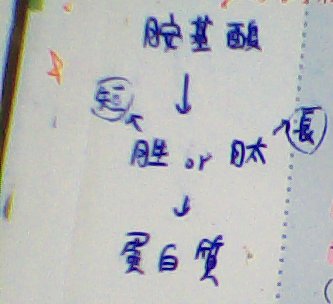 胺基酸
短
長
胜 or 肽
蛋白質